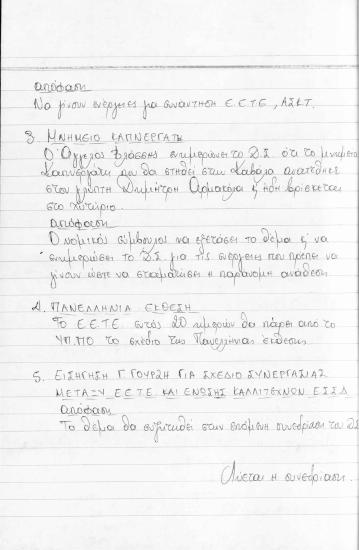 απόφαση
Να γίνουν ενέργειες για συνάντηση Ε.Ε.Τ.Ε, ΑΣΚΤ.
3. ΜΝΗΜΕΙΟ ΚΑΠΝΕΡΓΑΤΗ
Ο Άγγελος Βλάσσης ενημερώνει το Δ.Σ. ότι το μνημείο
Καπνεργάτη που θα στηθεί στην Καβάλα ανατέθηκε
στον γλύπτη Δημήτρη και ήδη βρίσκεται
στο χυτήριο.
απόφαση
Ο νομικός σύμβουλος να εξετάσει το θέμα και να
ενημερώσει το Δ.Σ για τις ενέργειες που πρέπει να
γίνουν ώστε να σταματήσει η παράνομη ανάθεση
4. ΠΑΝΕΛΛΗΝΙΑ ΕΚΘΕΣΗ
Το Ε.Ε.Τ.Ε. εντός 20 ημερών θα πάρει από το
ΥΠ.ΠΟ το σχέδιο της Πανελλήνιας έκθεσης
5. ΕΙΣΗΓΗΣΗ Γ ΓΟΥΡΖΗ ΓΙΑ ΣΧΕΔΙΟ ΣΥΝΕΡΓΑΣΙΑΣ
ΜΕΤΑΞΥ ΕΕΤΕ ΚΑΙ ΕΝΩΣΗΣ ΚΑΛΛΙΤΕΧΝΩΝ ΕΣΣΔ
απόφαση
Το θέμα θα συζητηθεί στην επόμενη συνεδρίαση του ΔΣ
Λύεται η συνεδρίαση.